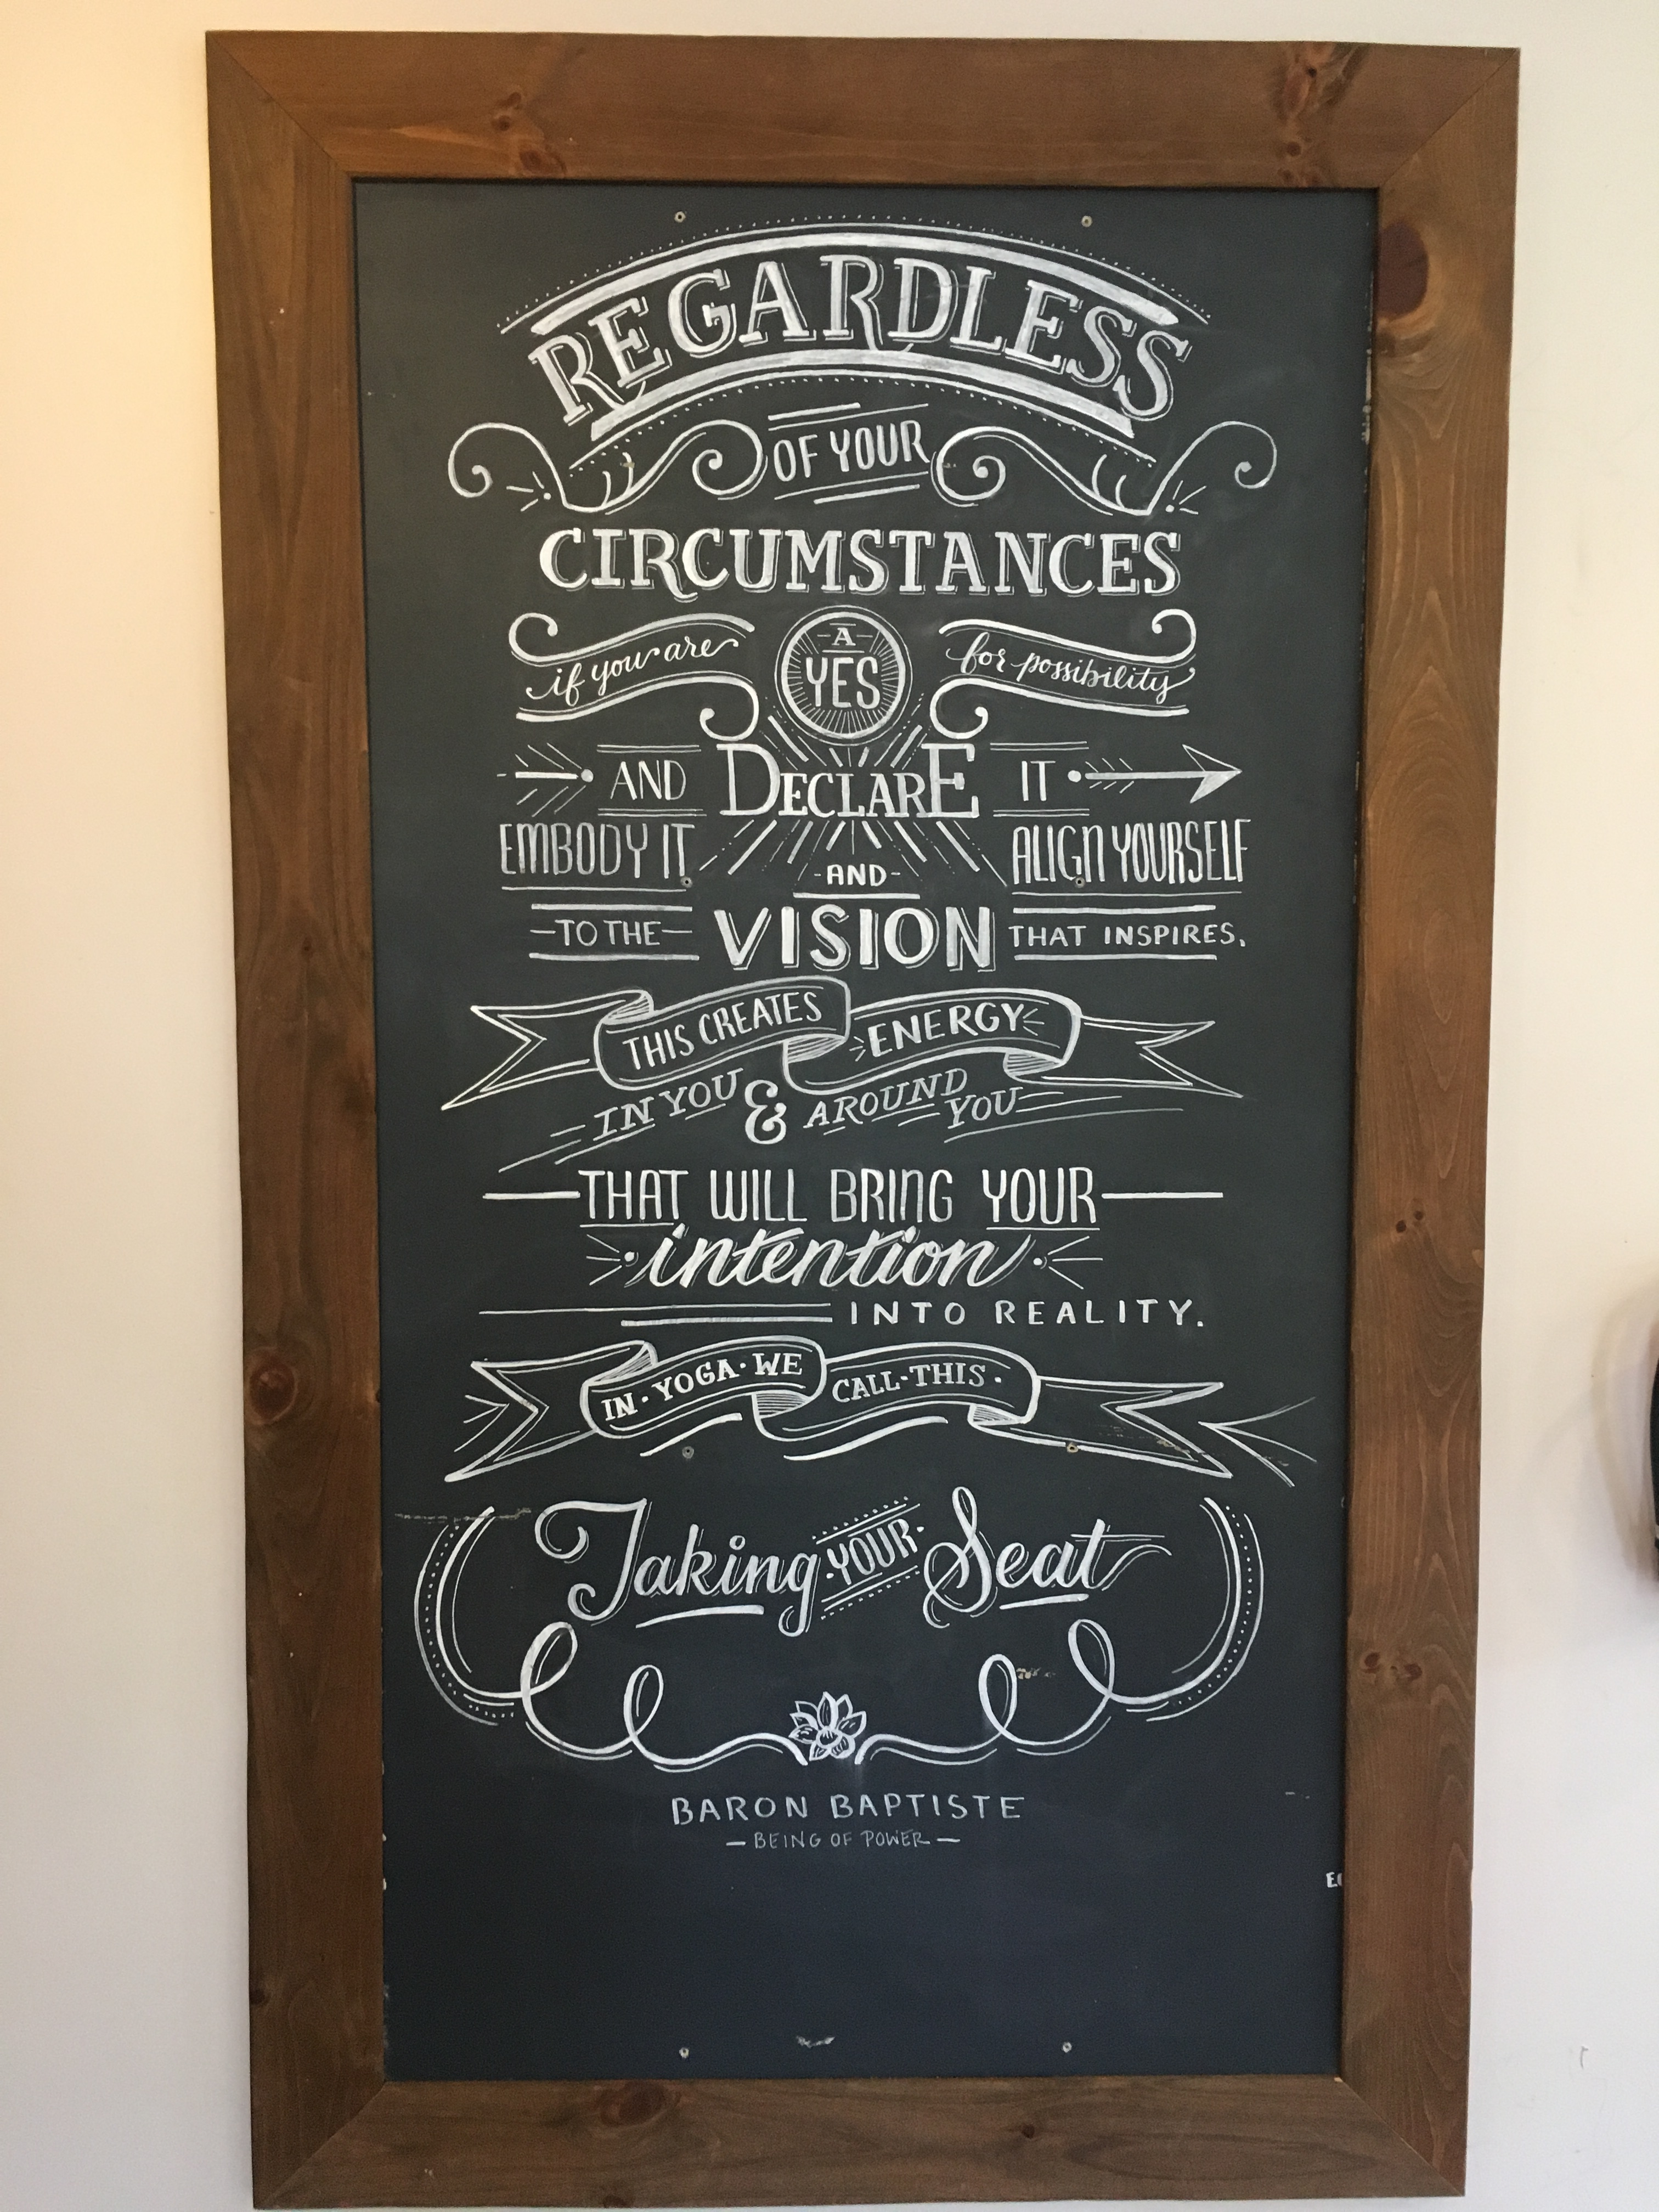 REGARDLESS
OF YOUR
CIRCUMSTANCES
if you are A YES for possibility
AND DECLARE IT
EMBODY IT AND ALIGN YOURSELF
TO THE VISION THAT INSPIRES.
THIS CREATES ENERGY
IN YOU & AROUND YOU
THAT WILL BRING YOUR
intention
INTO REALITY.
IN · YOGA · WE CALL · THIS ·
Taking · YOUR · Seat
BARON BAPTISTE
— BEING OF POWER —